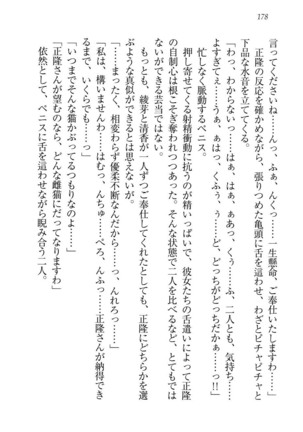 178
言ってくださいね……んっ、ふぁ、んんっ……一生懸命、ご奉仕いたしますわ……」
　正隆の反応を確かめながら、張りつめた亀頭に舌を這わせ、わざとピチャピチャと
下品な水音を立ててくる。
「わっ、わからないっ……はぁ、はぁ、ぁあっ、くっ……ふ、二人とも、気持ち……
よすぎてぇ……うぅっ……はぁっ、くふぅ、ぅ……ど、どっちがどっちだかぁ……
忙しなく脈動するペニス。
押し寄せてくる射精衝動に抗うのが精いっぱいで、彼女たちの舌遣いによって正隆
の自制心は根こそぎ奪われつつあった。そんな状態で二人を比べるなど、とてもでは
ないができる芸当ではない。
　もっとも、綾芽と清香が一人ずつご奉仕してくれたとしても、正隆にどちらかを選
ぶような真似ができるとは思えないが。
「……まったく、相変わらず優柔不断なんだから……っ、んれろっ……」
「私は、構いませんわ……はむっ、んちゅっ……べろ、んふっ……正隆さんが納得でき
るまで、いくらでも……っ」
「いつまでそんな猫かぶってるつもりなのよ……」
「正隆さんが望むのなら、どんな雌猫にだってなりますわ」
　依然として、ペニスに舌を這わせながら睨み合う二人。